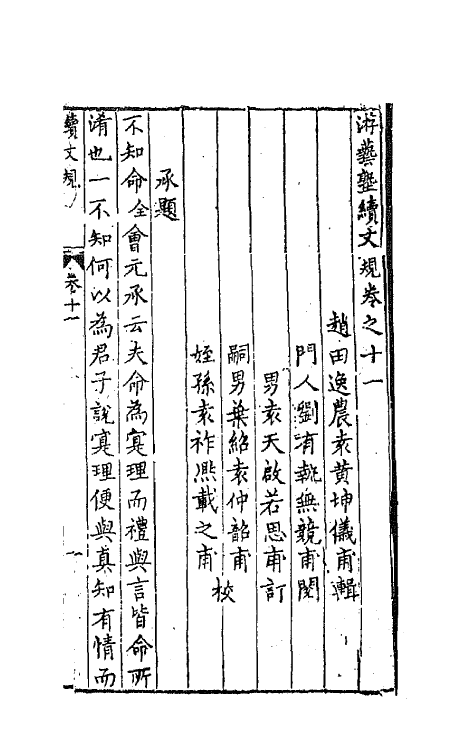 游藝塾續文規卷之十一
趙田逸農袁黃坤儀甫輯
門人劉有執無競甫閱
男袁天啟若思甫訂
嗣男葉紹袁仲韶甫
姪孫袁祚熙載之甫
校
承題
不知命全會元承云夫命為寔理而禮與言皆命所
淆也一不知何以為君子說寔理便與真知有情而
續文規
卷十一
一